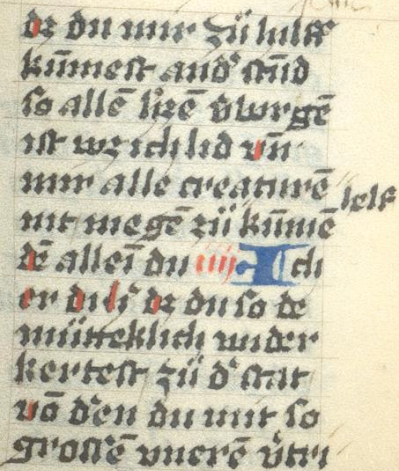 dz du mir zü hilff
kūmest and' stūd
so allē hʼzē v̄borgē
ist wz ich lid vn̄
mir alle creaturē helf
nit megē zü kūmē
dē alleī du iiij Ich
er du liʒ dz du so de
mütteklich wider
kertest zü d' stat
vō d'en du mit so
grossē vnerē v̄tri